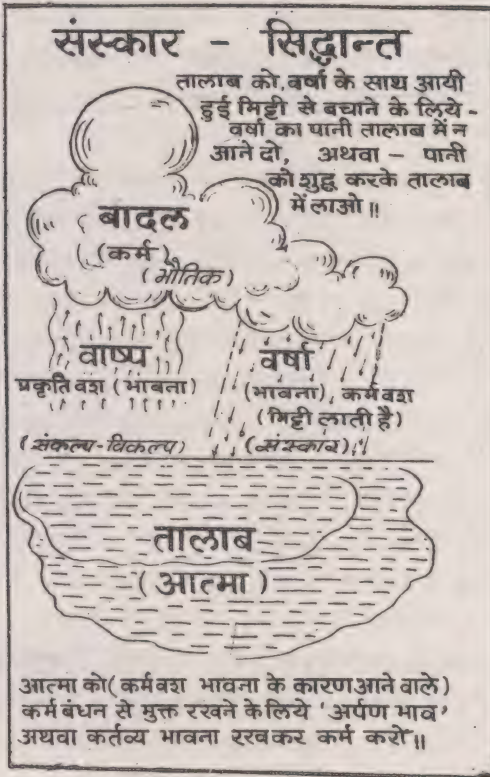 संस्कार - सिद्धान्त
तालाब को, वर्षा के साथ आयी
हुई मिट्टी से बचाने के लिये -
वर्षा का पानी तालाब में न
आने दो, अथवा - पानी
को शुद्ध करके तालाब
में लाओ॥
बादल
(कर्म)
(भौतिक)
वाष्प
प्रकृति वश (भावना)
वर्षा
(भावना), कर्मवश
(मिट्टी लाती है)
(संकल्प-विकल्प)
(संस्कार)
तालाब
(आत्मा)
आत्मा को (कर्मवश भावना के कारण आने वाले)
कर्म बंधन से मुक्त रखने के लिये 'अर्पण भाव'
अथवा कर्तव्य भावना रखकर कर्म करो॥